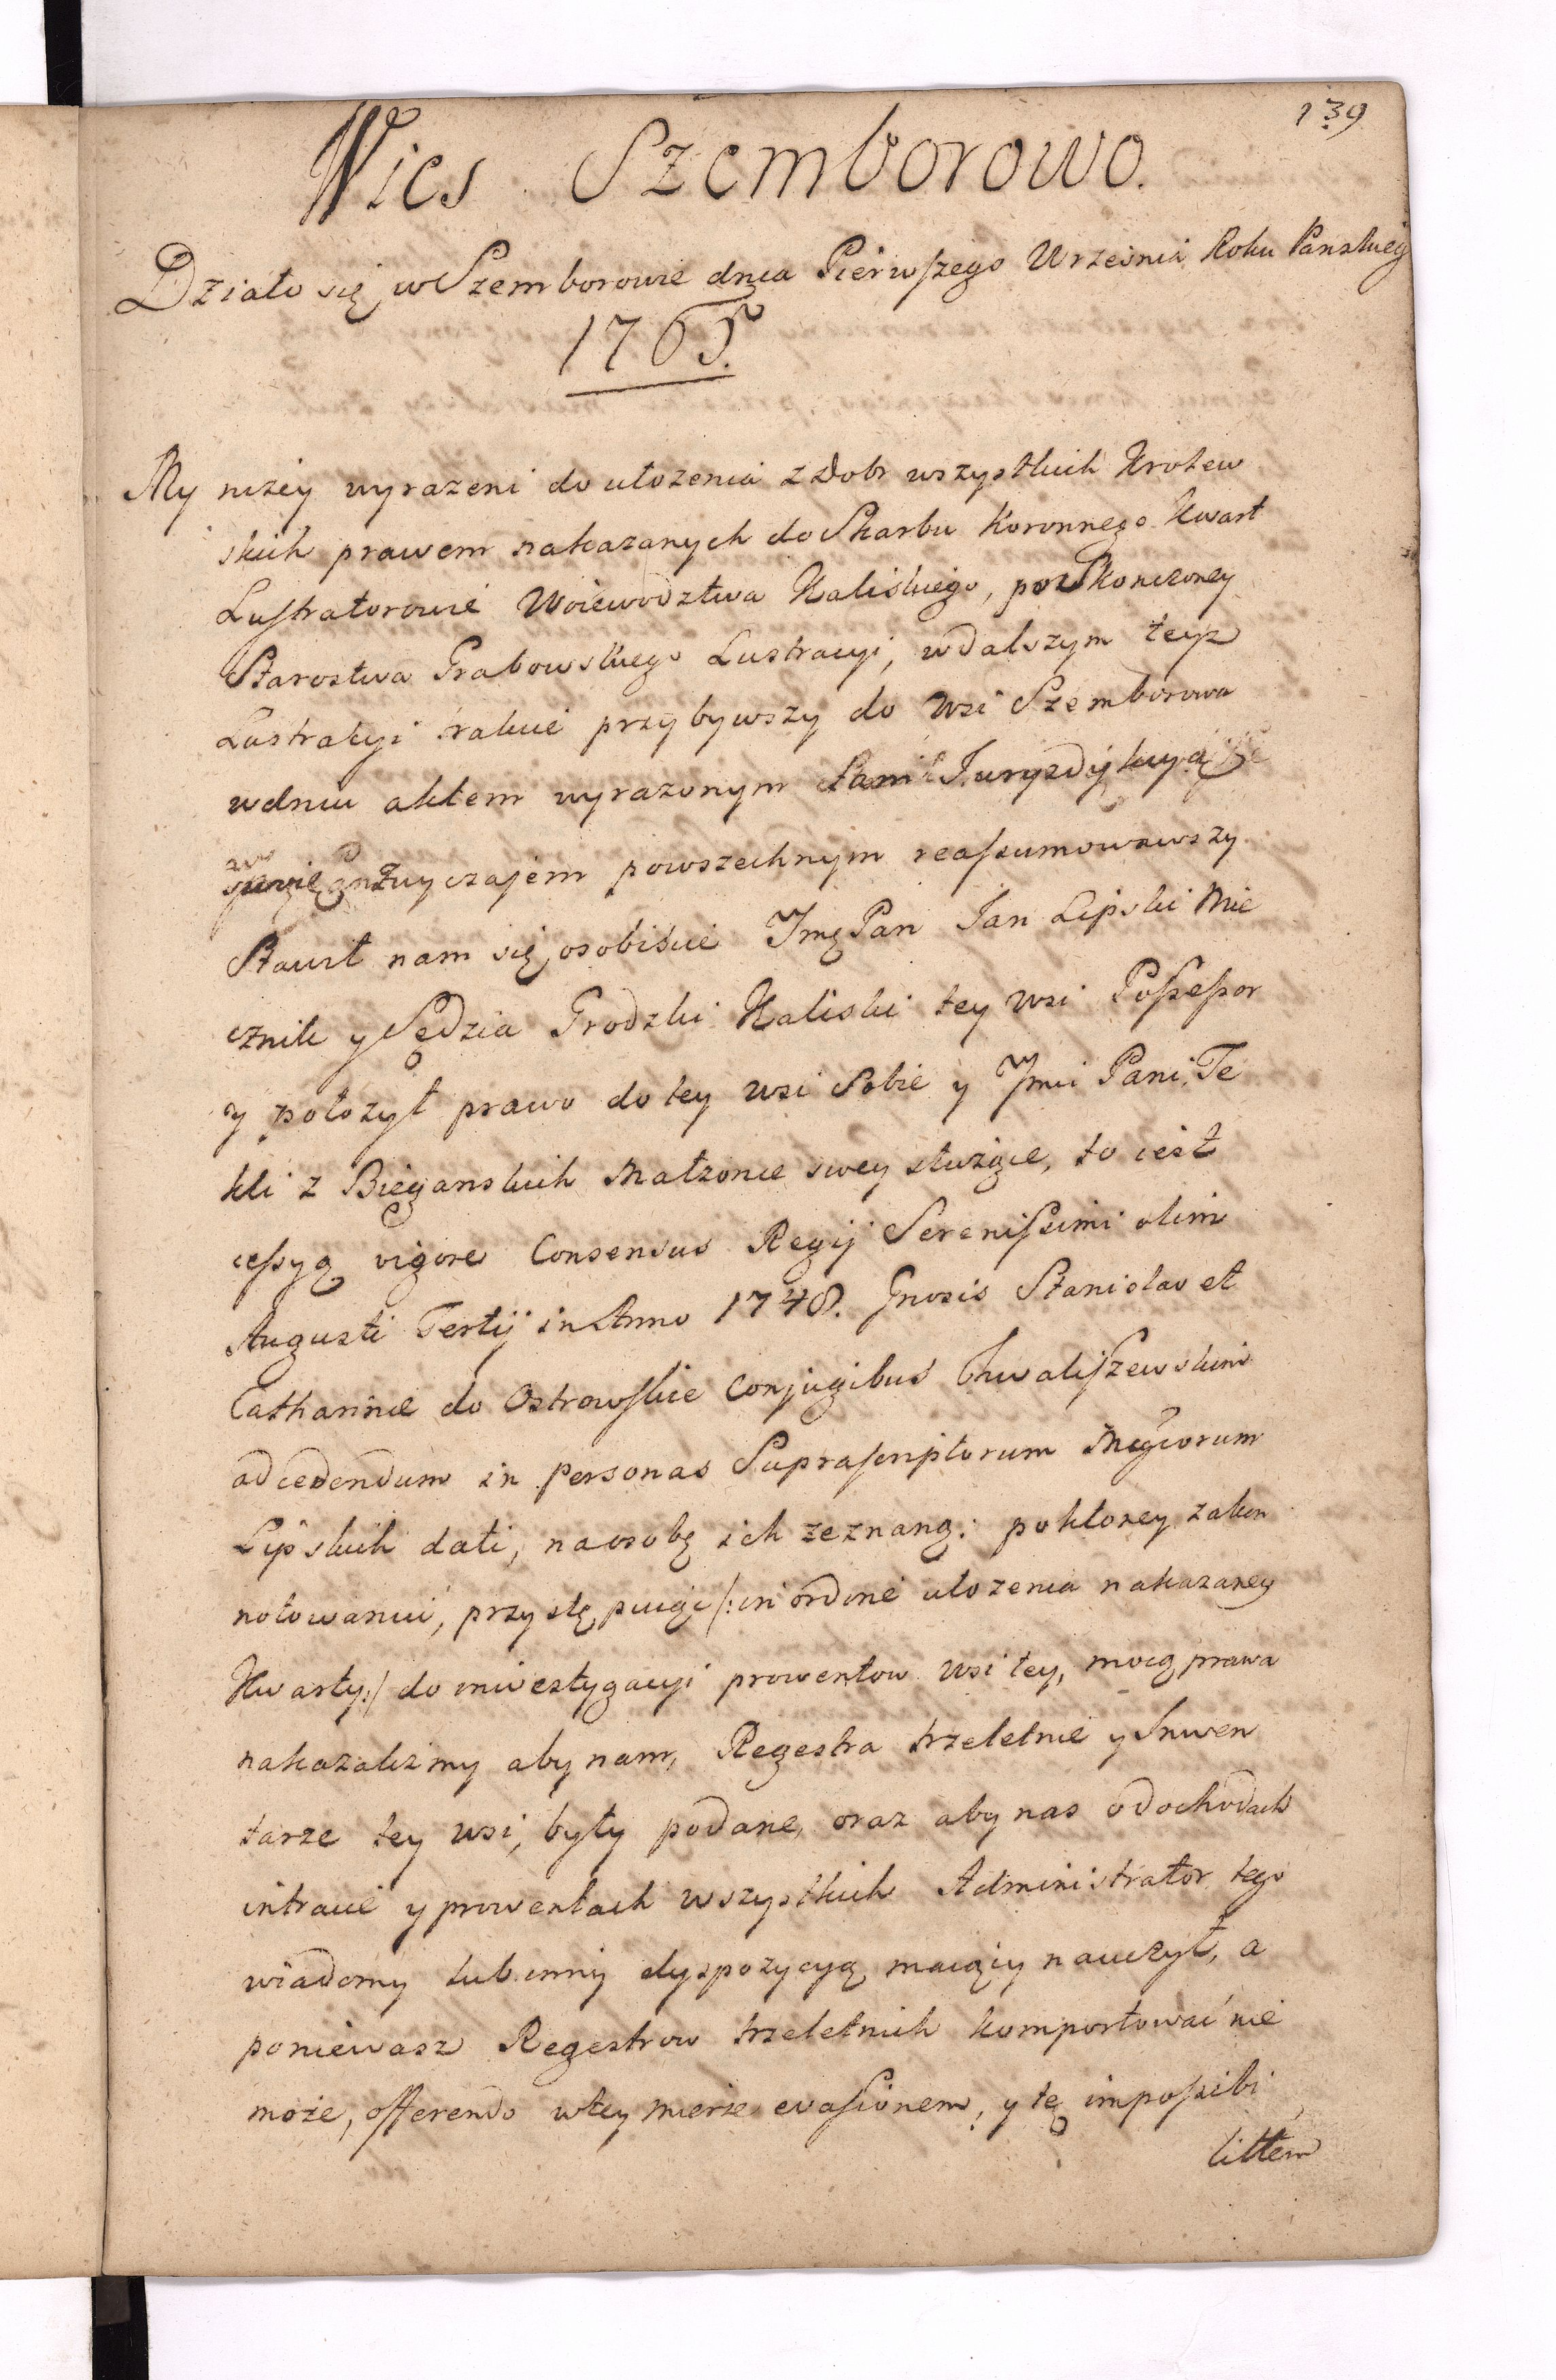 139
Wies Szemborowo.
Działo się w Szemborowie dnia Pierwszego Września Roku Panskieg
1765.
My niżey wyrazeni do ułozenia z Dobr wszystkich Krolew
skich prawem nakazanych do Skarbu Koronnego Kwart
Lustratorowie Woiewodztwa Kaliskiego, po Skonczoney
Starostwa Grabowskiego Lustracyi, w dalszym teyz
Lustracyi trakcie przybywszy do Wsi Szemborowa
w dniu aktem wyrazonym Jurysdykcyą
zwyczajem powszechnym reassumowawszy
Stawił nam się osobiscie Jmę Pan Jan Lipski Mie
cznik y Sędzia Grodzki Kaliski tey Wsi Possessor
y położył prawo do tey Wsi Sobie y Jmci Pani Te
kli z Bieganskich Małzonce swey służące, to iest
cessyą vigore Consensus Regij Serenissimi olim
Augusti Tertij in Anno 1748. Gnosis Stanislao et
Catharinæ de Ostrowskie Conjugibus Chwaliszewskim
ad cedendum in Personas Suprascriptorum Mgcorum
Lipskich dati, na osobę ich zeznaną: po ktorey zakon
notowaniu, przystępuiąc /: in ordine ułozenia nakazaney
Kwarty :/ do inwestygacyi prowentow Wsi tey, mocą prawa
nakazalismy aby nam, Regestra trzeletnie y Inwen
tarze tey Wsi, były podane, oraz aby nas o dochodach
intracie y prowentach wszystkich Administrator tego
wiadomy lub inny dyspozycyą maiący nauczył, a
poniewasz Regestrow trzeletnich komportować nie
może, offerendo w tey mierze evasionem, y tę impossibi
litatem